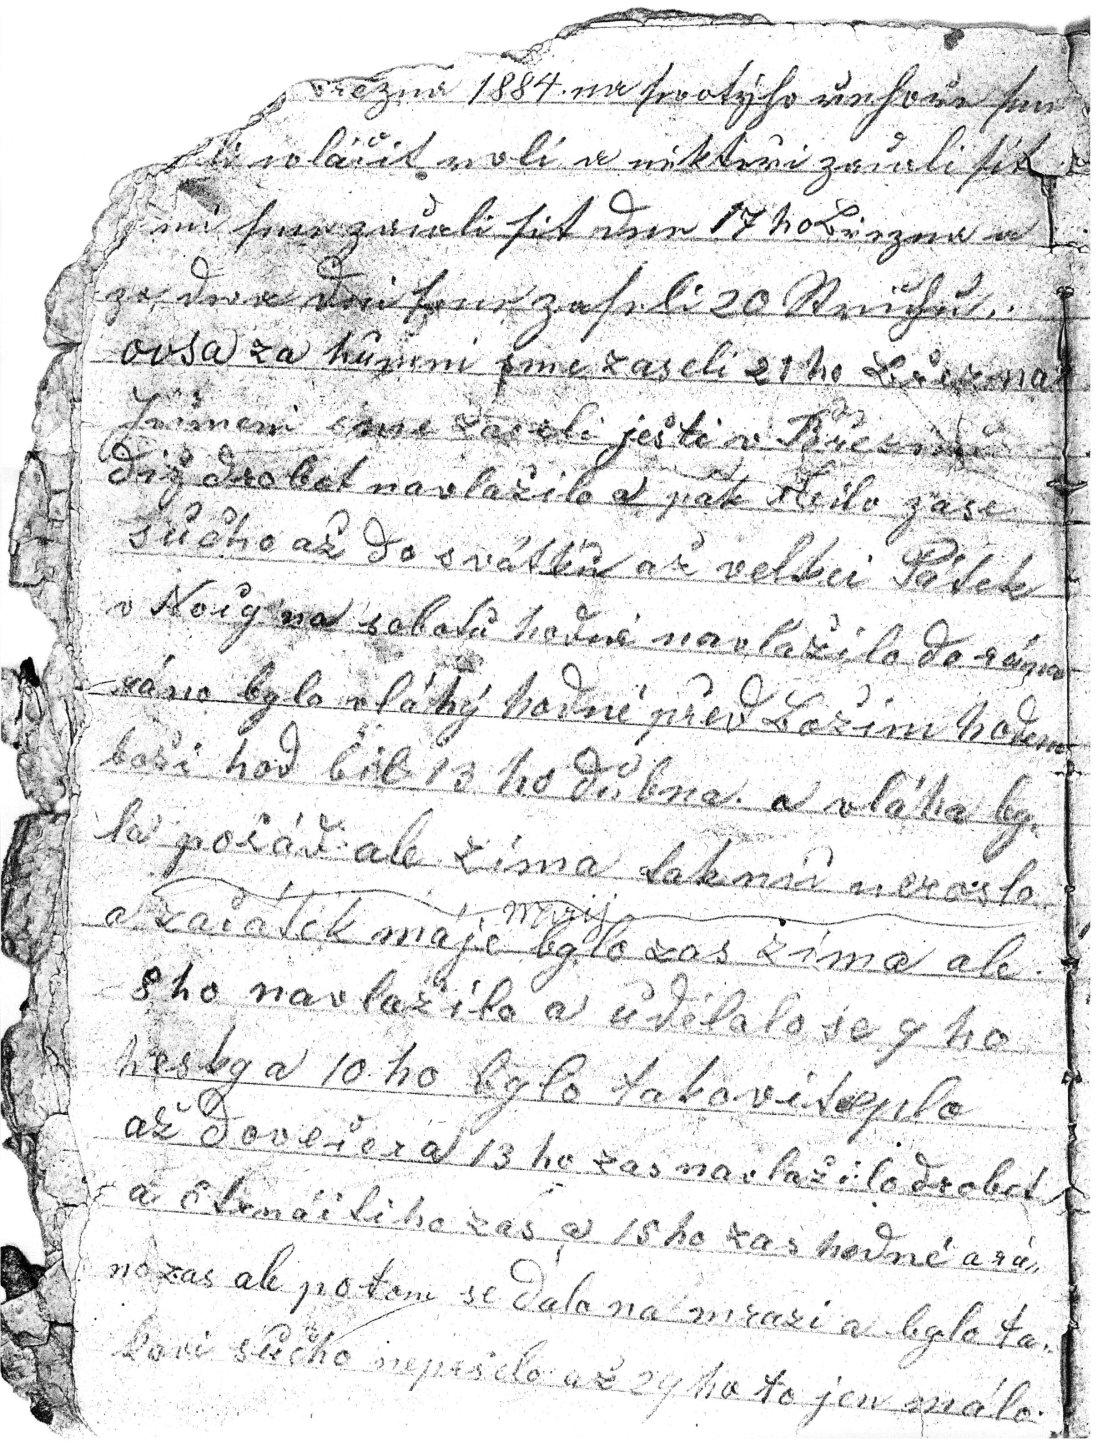 března 1884. na svatýho řehoře sme
li vláčit roli a někteři začali sít
mi sme začali sit dne 17 ho Března a
za dva dni sme zaseli 20 Strichů..
ovsa za hůmni sme zaseli 21 ho Března
Ječmeni sme zaseli ješti v Březnu
diž drobet navlažilo a pak bilo zase
sůcho až do svátků až velkei Pátek
v Noig na sobotu hodně navlažilo do rána
ráno bylo vláhý hodně před Božim hodem
boži hod bil 13 ho dubna. a vláha by-
la pořád ale zíma tak nic nerostlo
a začátek máje bylo zas zíma ale.
máj
8 ho navlažilo a udělalo se 9 ho
hesky a 10 ho bylo takovi teplo
až dovečera 13 ho zas navlažilo drobet
a čtrnáctiho zas a 15 ho zas hodně a rá,,
no zas ale potom se dalo na mrazi a bylo ta-
kovi sůcho nepršelo až 29 ho to jen málo.